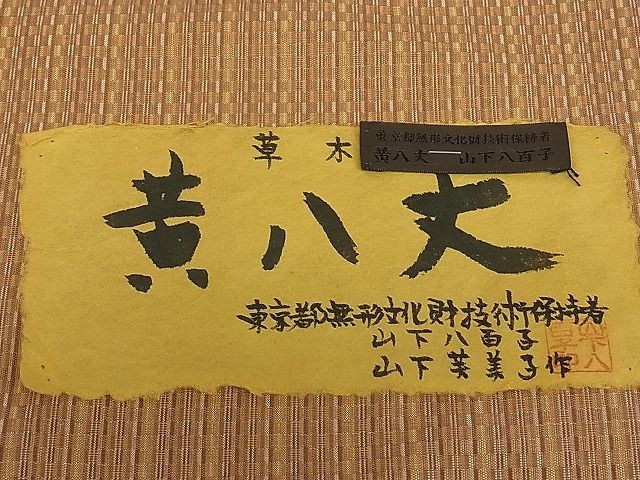 草木
東京都無形文化財技術保持者
黄八丈 山下八百子
黄八丈
東京都無形文化財技術保持者
山下八百子
山下芙美子作